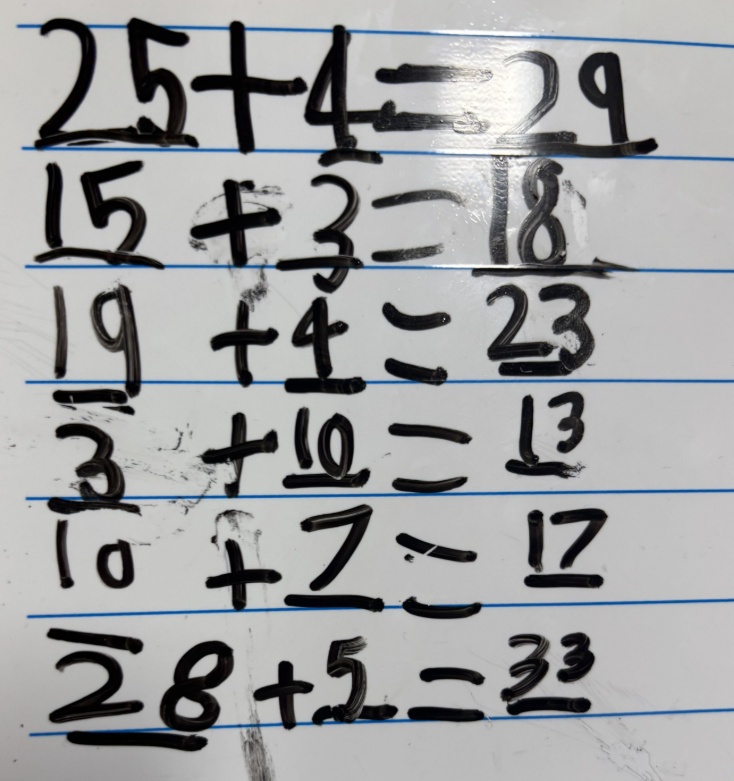 25+4=29
15+3=18
19+4=23
3+10=13
10+7=17
28+5=33